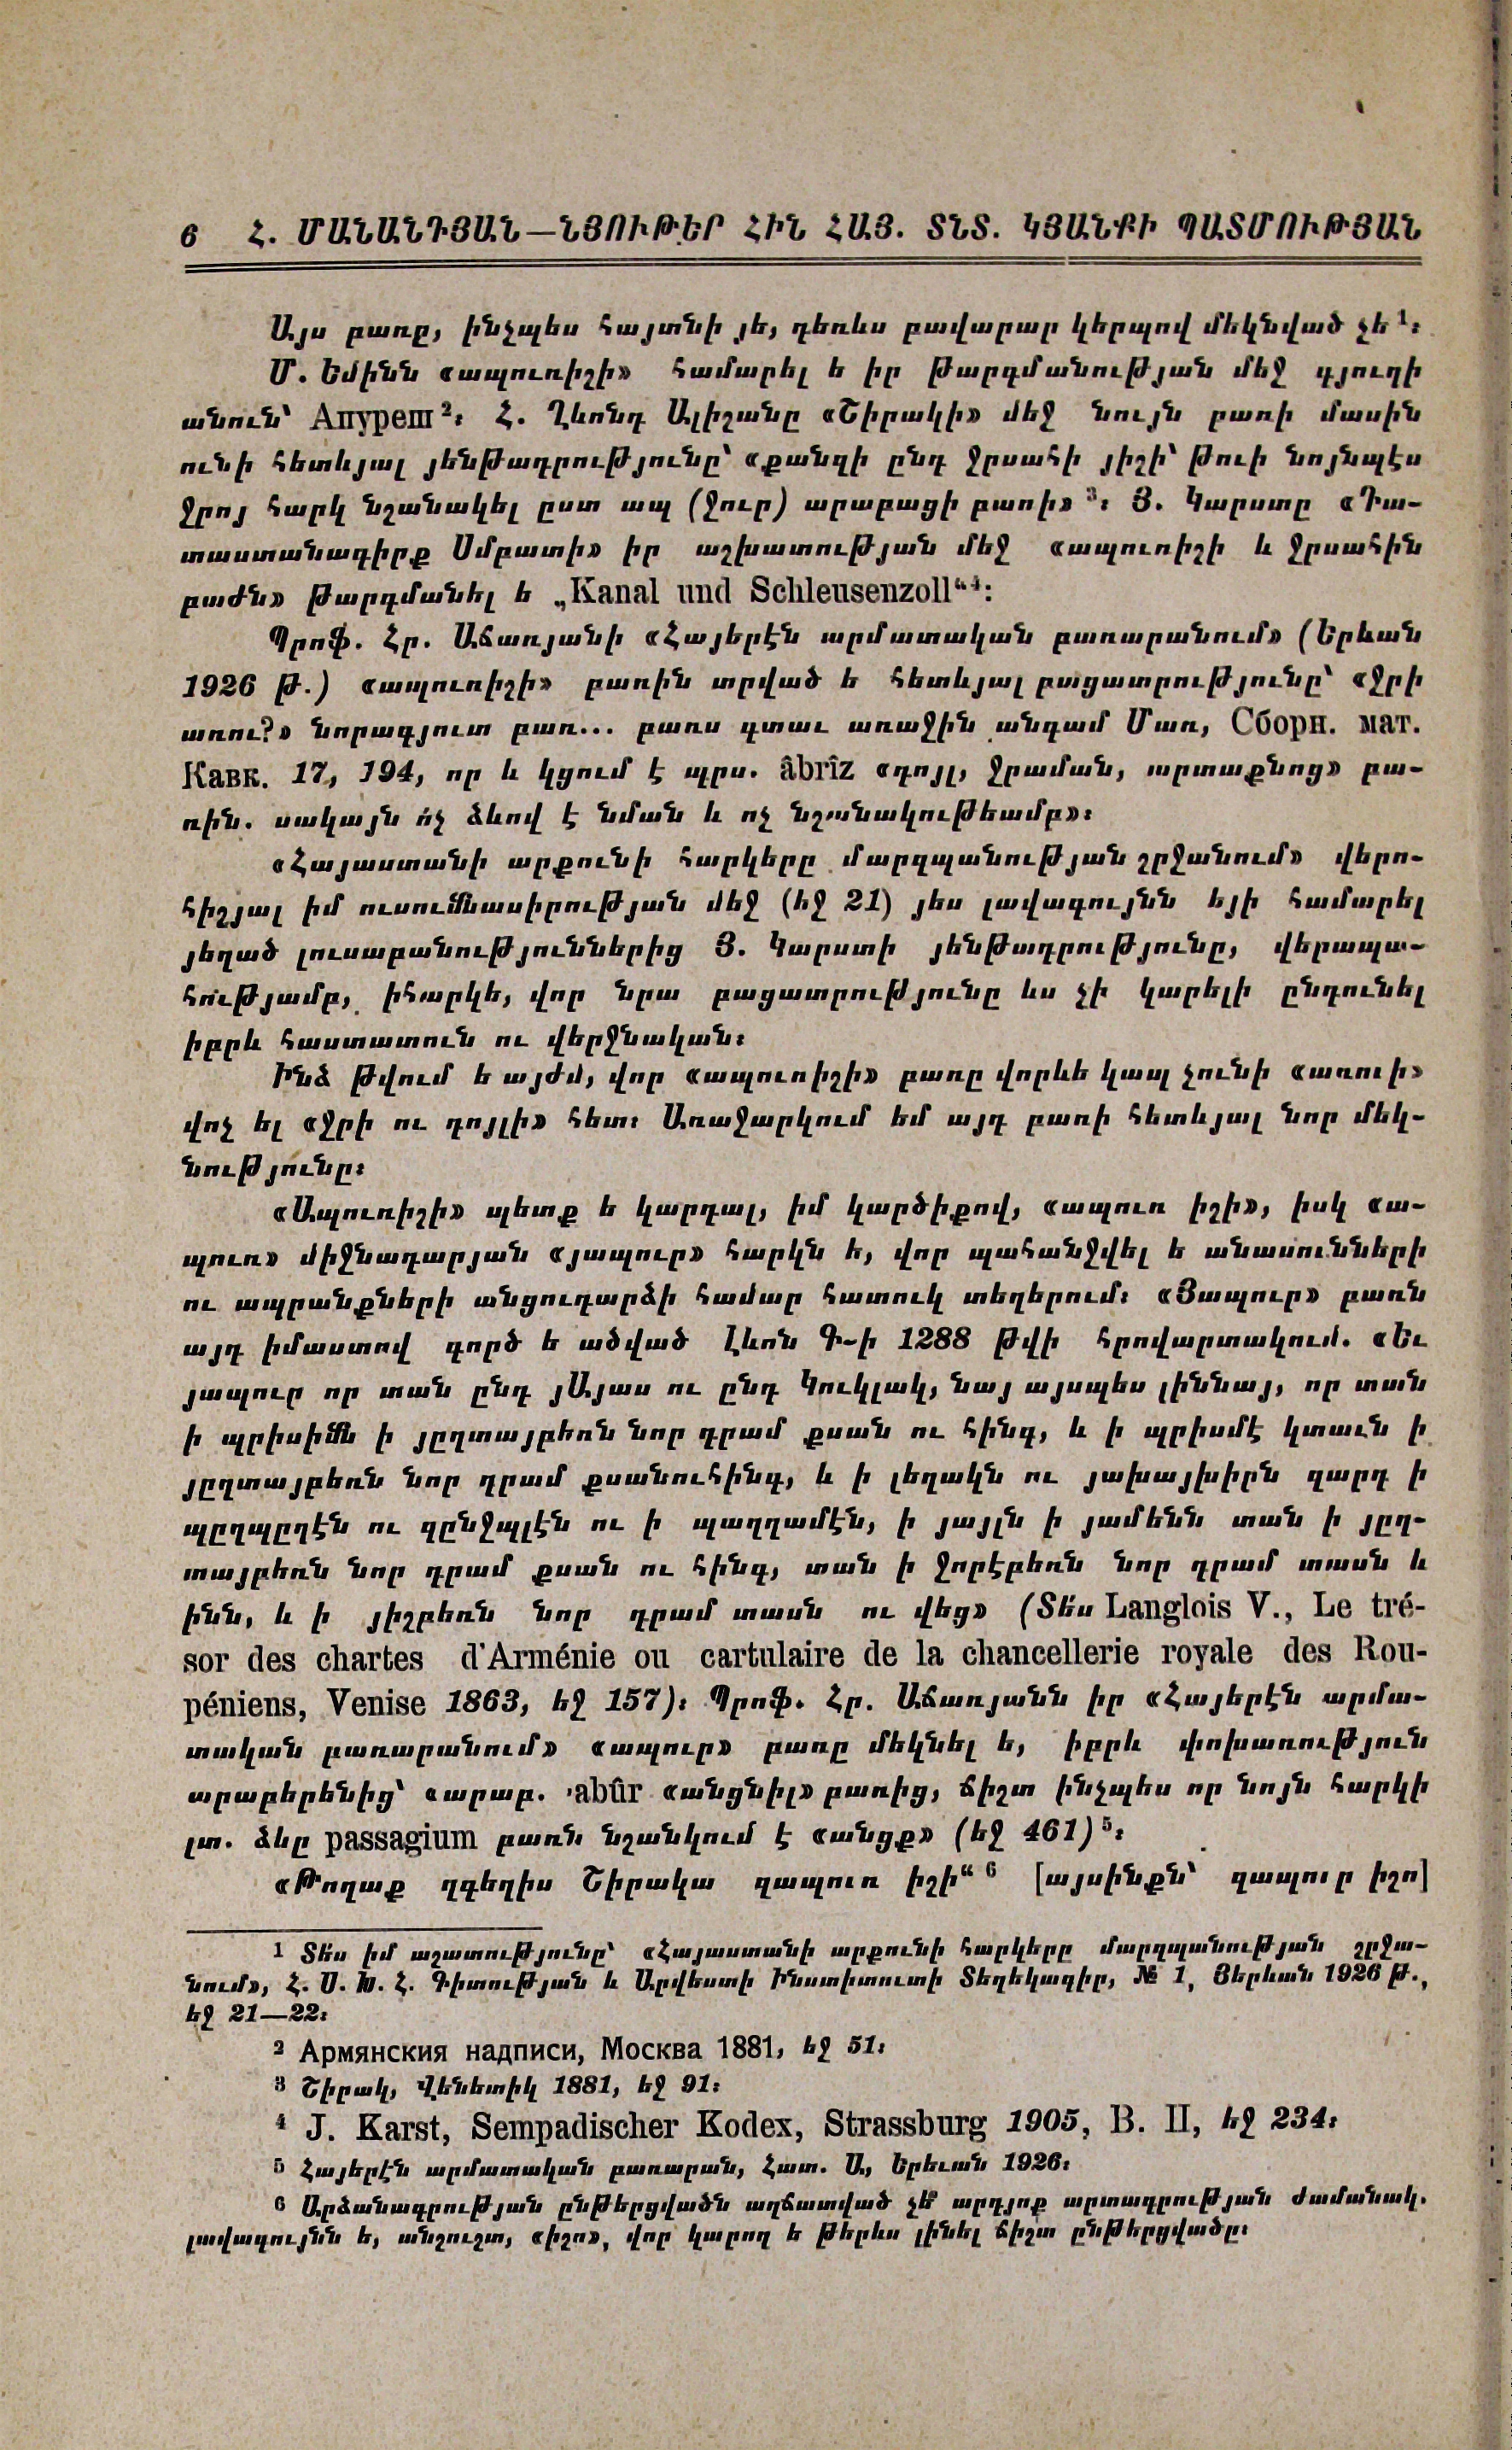 6 Հ. ՄԱՆԱՆԴՅԱՆ—ՆՅՈՒԹԵՐ ՀԻՆ ՀԱՅ. ՏՆՏ. ԿՅԱՆՔԻ ՊԱՏՄՈՒԹՅԱՆ
Այս բառը, ինչպես հայտնի յե, դեռևս բավարար կերպով մեկնված չե ¹։
Մ. Եմինն «ապուռիշի» համարել ե իր թարգմանության մեջ գյուղի
անուն՝ Апуреш ²։ Հ. Ղևոնդ Ալիշանը «Շիրակի» մեջ նույն բառի մասին
ունի հետևյալ յենթադրությունը՝ «քանզի ընդ ջրսահի յիշի՝ թուի նոյնպէս
ջրոյ հարկ նշանակել ըստ ապ (ջուր) արաբացի բառի» ³։ Յ. Կարստը «Դա-
տաստանագիրք Սմբատի» իր աշխատության մեջ «ապուռիշի և ջրսահին
բաժն» թարգմանել ե „Kanal und Schleusenzoll“⁴։
Պրոֆ. Հր. Աճառյանի «Հայերէն արմատական բառարանում» (Երևան
1926 թ.) «ապուռիշի» բառին տրված ե հետևյալ բացատրությունը՝ «ջրի
առու?» նորագյուտ բառ... բառս գտաւ առաջին անգամ Մառ, Сборн. мат.
Кавк. 17, 194, որ և կցում է պրս. âbrîz «դոյլ, ջրաման, արտաքնոց» բա-
ռին. սակայն ո՛չ ձևով է նման և ոչ նշանակութեամբ»։
«Հայաստանի արքունի հարկերը մարզպանության շրջանում» վերո-
հիշյալ իմ ուսումնասիրության մեջ (եջ 21) յես լավագույնն եյի համարել
յեղած լուսաբանություններից Յ. Կարստի յենթադրությունը, վերապա-
հությամբ, իհարկե, վոր նրա բացատրությունը ևս չի կարելի ընդունել
իբրև հաստատուն ու վերջնական։
Ինձ թվում ե այժմ, վոր «ապուռիշի» բառը վորևե կապ չունի «առուի»
վոչ ել «ջրի ու դոյլի» հետ։ Առաջարկում եմ այդ բառի հետևյալ նոր մեկ-
նությունը։
«Ապուռիշի» պետք ե կարդալ, իմ կարծիքով, «ապուռ իշի», իսկ «ա-
պուռ» միջնադարյան «յապուր» հարկն ե, վոր պահանջվել ե անասունների
ու ապրանքների անցուդարձի համար հատուկ տեղերում։ «Յապուր» բառն
այդ իմաստով գործ ե ածված Լևոն Գ-ի 1288 թվի հրովարտակում. «Եւ
յապուր որ տան ընդ յԱյաս ու ընդ Կուկլակ, նայ այսպես լիննայ, որ տան
ի պրիսիմն ի յըղտայբեռն նոր դրամ քսան ու հինգ, և ի պրիսմէ կտաւն ի
յըղտայբեռն նոր դրամ քսանուհինգ, և ի լեղակն ու յախայխիրն զարդ ի
պըղպըղէն ու զընջպլէն ու ի պաղղամէն, ի յայլն ի յամենն տան ի յըղ-
տայբեռն նոր դրամ քսան ու հինգ, տան ի ջորէբեռն նոր դրամ տասն և
ինն, և ի յիշբեռն նոր դրամ տասն ու վեց» (Տե՛ս Langlois V., Le tré-
sor des chartes d'Arménie ou cartulaire de la chancellerie royale des Rou-
péniens, Venise 1863, եջ 157)։ Պրոֆ. Հր. Աճառյանն իր «Հայերէն արմա-
տական բառարանում» «ապուր» բառը մեկնել ե, իբրև փոխառություն
արաբերենից՝ «արաբ. ՙabûr «անցնիլ» բառից, ճիշտ ինչպես որ նոյն հարկի
լտ. ձևը passagium բառն նշանկում է «անցք» (եջ 461) ⁵։
«Թողաք զգեղիս Շիրակա զապուռ իշի“ ⁶ [այսինքն՝ զապուր իշո]
¹ Տե՛ս իմ աշատությունը՝ «Հայաստանի արքունի հարկերը մարզպանության շրջա-
նում», Հ. Ս. Խ. Հ. Գիտության և Արվեստի Ինստիտուտի Տեղեկագիր, № 1, Յերևան 1926 թ.,
եջ 21—22։
² Армянския надписи, Москва 1881, եջ 51։
³ Շիրակ, Վենետիկ 1881, եջ 91։
⁴ J. Karst, Sempadischer Kodex, Strassburg 1905, B. II, եջ 234։
⁵ Հայերէն արմատական բառարան, Հատ. Ա., Երեւան 1926։
⁶ Արձանագրության ընթերցվածն աղճատված չե՞ արդյոք արտագրության ժամանակ.
լավագույնն ե, անշուշտ, «իշո», վոր կարող ե թերևս լինել ճիշտ ընթերցվածը։